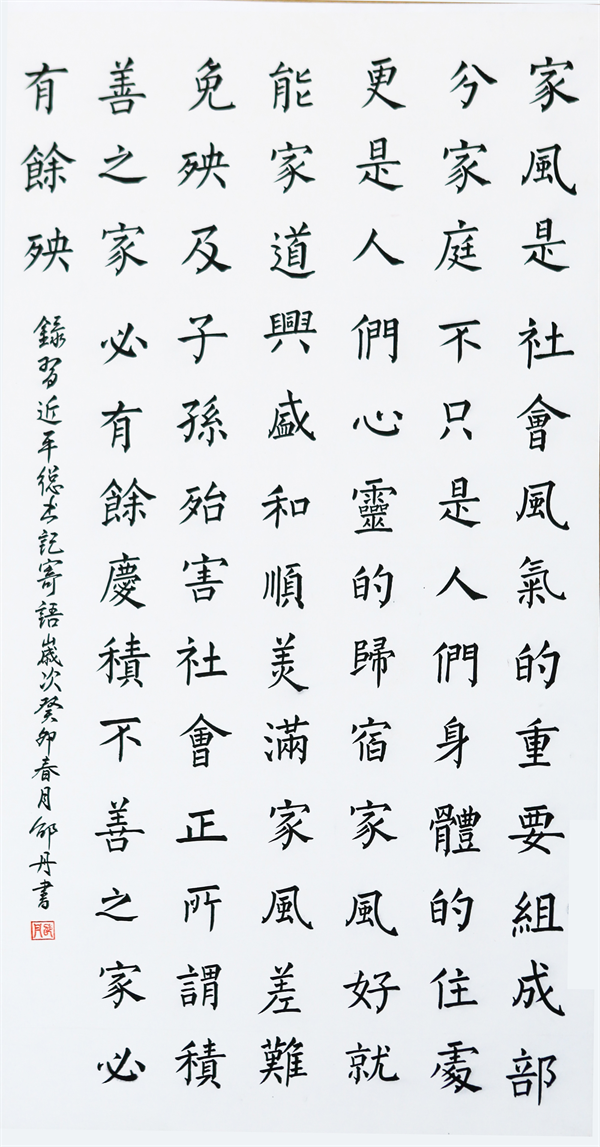 家風是社會風氣的重要組成部
分家庭不只是人們身體的住處
更是人們心靈的歸宿家風好就
能家道興盛和順美滿家風差難
免殃及子孫殆害社會正所謂積
善之家必有餘慶積不善之家必
有餘殃
錄習近平總書記寄語歲次癸卯春月丹書